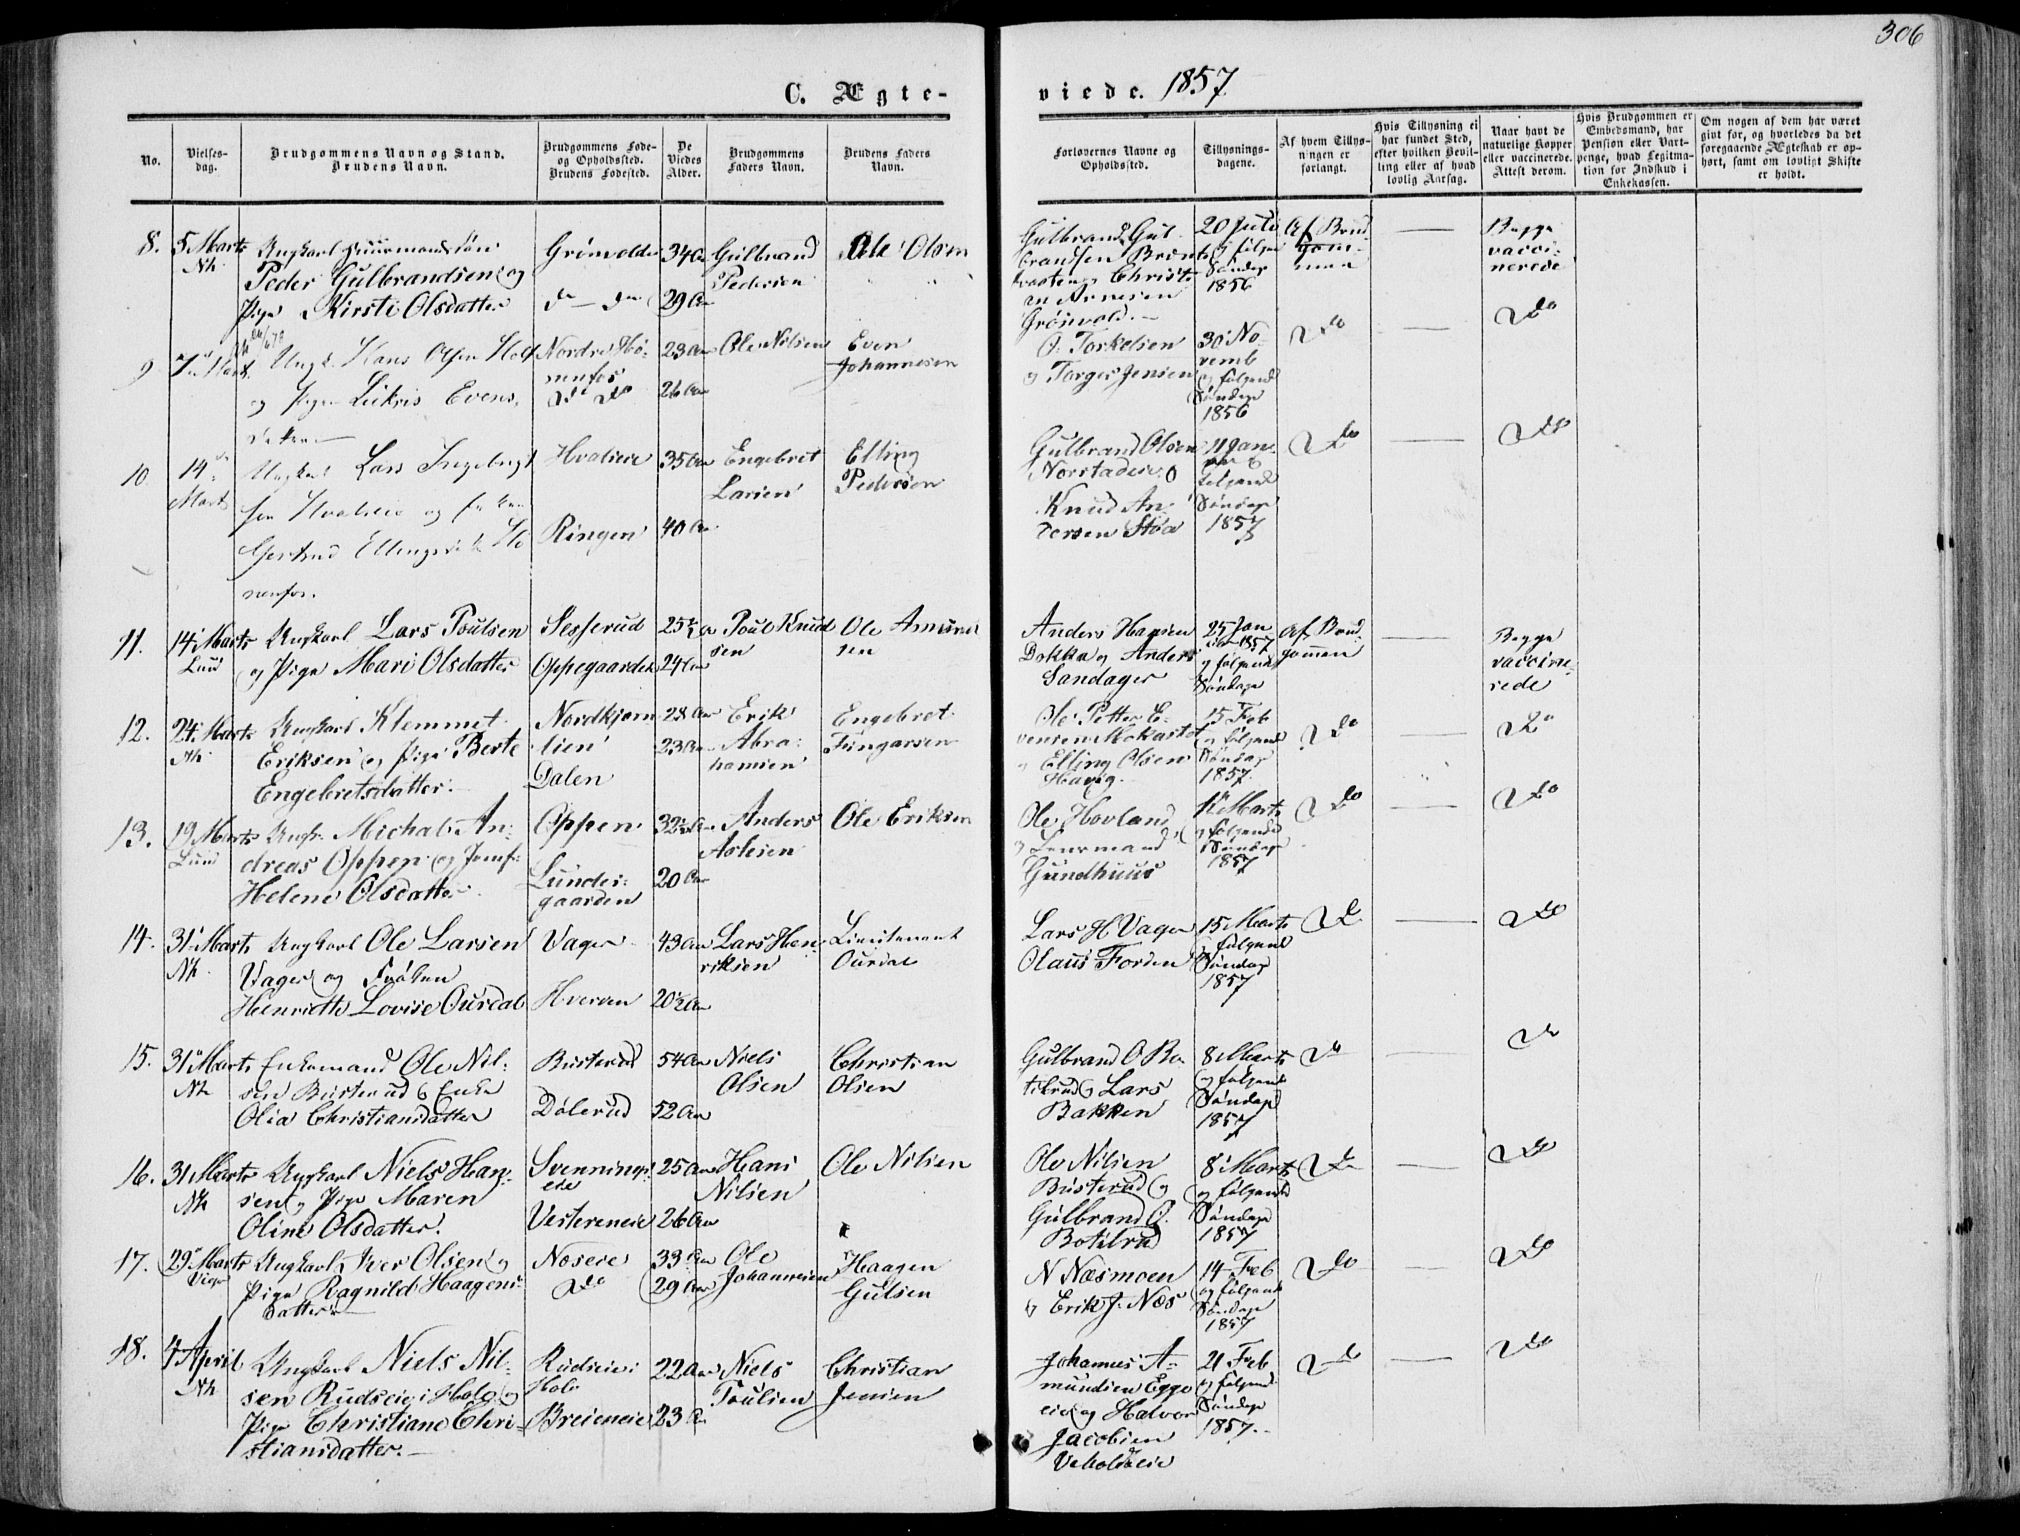 306
C. Ægte-
viede. 1857
No.
Vielses-
dag.
Brudgommens Navn og Stand.
Brudens Navn.
Brudgommens Føde-
og Opholdssted.
Brudens Fødested.
De
Viedes
Alder.
Brudgommens
Faders Navn.
Brudens Faders
Navn.
Forlovernes Navne og
Opholdssted.
Tillysnings-
dagene.
Af hvem Tillys-
ningen er
forlangt.
Hvis Tillysning ei
har fundet Sted,
efter hvilken Bevil-
ling eller af hvad
lovlig Aarsag.
Naar havt de
naturlige Kopper
eller vaccinerede.
Attest derom.
Hvis Brudgommen er
Embedsmand, har
Pension eller Vart-
penge, hvad Legitima-
tion for Indskud i
Enkekassen.
Om nogen af dem har været
givt for, og hvorledes da det
foregaaende Ægteskab er op-
hørt, samt om lovligt Skifte
er holdt.
8. 5 Marts
Nh.
Ungkarl Huusmandssøn
Peder Gulbrandsen og
Pige Kirsti Olsdatter
Grønvolde
do do
34 Aar
29 Aar
Gulbrand
Pedersen
Ole Olsen
Gulbrand Gul-
brandsen
Christi-
an Arnesen
Grønvold.
20 Juli
og følgen
Søndage
1856
Af Brud
gom-
men
Begge
vacci-
nerede
9 7 Marts
Ungk. Hans Olsen
og Pige Evens-
Nordre Hø-
nenfos
do do
23 Aar
26 Aar
Ole Nilsen
Even
Johannesen
O. Torkelsen
og Torger Jensen
30 No-
vemb
og følgend
Søndage
1856
do
do
10 14
Marts
Ungkarl Lars Ingebregt
sen Hvalseie og
Gertrud Ellingsdatter Hø
nenfos.
Hvalseie
Ringen
35 Aar
40 Aar
Engebret
Larsen
Elling
Pedersen
Gulbrand Olsen
Norstadeie og
Knud An-
dersen Stöa
11 Jan-
uar og
følgende
Søndage
1857
do
do
11. 14 Marts
Lund
Ungkarl Lars Poulsen
og Pige Mari Olsdatter
Sesserud
Oppegaarden
25½ Aar
24 Aar
Poul Knud
sen
Ole Amund
sen
Anders Hansen
Dokka og Anders
Sandager
25 Jan
uar 1857
og følgende
Søndage
Af Brud
gommen
Begge
vaccine-
rede
12. 24 Marts
Nh
Ungkarl Klemmet
Eriksen og Pige Berte
Engebretsdatter.
Nordkjern
lien
Dalen
28 Aar
23 Aar
Erik
Abra-
hamsen
Engebret
Fingarsen
Ole Petter E-
vensen Mokastet
og Elling Olsen
15 Feb
og følgende
Søndag
1857
do
do
13. 19 Marts
Lund
Ungk. Michal An-
dreas Oppen og Jomf.
Helene Olsdatter
Oppen
Lunder-
gaarden
32½ Aar
20 Aar
Anders
Aslesen
Ole Eriksen
Ole Hovland
og Lensmand
Gundhuus
1 Marts
og følgende
Søndage
1857
do
do
14. 31 Marts
Nh.
Ungkarl Ole Larsen
Vager og Frøken
Henriette Lovise Ourdal
Vager
Hverven
43 Aar
20½ Aar
Lars Hen-
riksen
Lieutenant
Ourdal
Lars H Vager
Olaus Forden
15 Marts
og følgend
Søndage
1857
do
do
15. 31 Marts
Nh
Enkemand Ole Nil-
sen Busterud og Enke
Olia Christiansdatter
Busterud
Dølerud
54 Aar
52 Aar
Niels
Olsen
Christian
Olsen
Gulbrand O Bo-
tilrud og Lars
Bakken
8 Marts
og følgende
Søndage
1857
do
do
16. 31 Marts
Nh
Ungkarl Niels Han-
sen og Pige Maren
Oline Olsdatter.
Svennings-
eie
Vestereneie
25 Aar
26 Aar
Hans
Nilsen
Ole Nilsen
Ole Nilsen
Busterud og
Gulbrand O.
Botilrud
8 Marts
og følgende
Søndage
1857
do
do
17. 29 Marts
Viger
Ungkarl Iver Olsen og
Pige Ragnild Haagens-
datter
Næseie
do
33 Aar
29 Aar
Ole
Johannesen
Haagen
Gulsen
N Næsmoen
og Erik J. Næs
14 Feb
og følgende
Søndage
1857
do
do
18. 4 April
Nh
Ungkarl Niels Nil-
sen Rudseie i Hole og
Pige Christiane Chri-
stiansdatter.
Rudseie i
Hole
Breieneie
22 Aar
23 Aar
Niels
Poulsen
Christian
Jensen
Johannes A-
mundsen Egge
eie og Halvor
Jacobsen
21 Feb
og følgend
Søndage
1857.
do
do